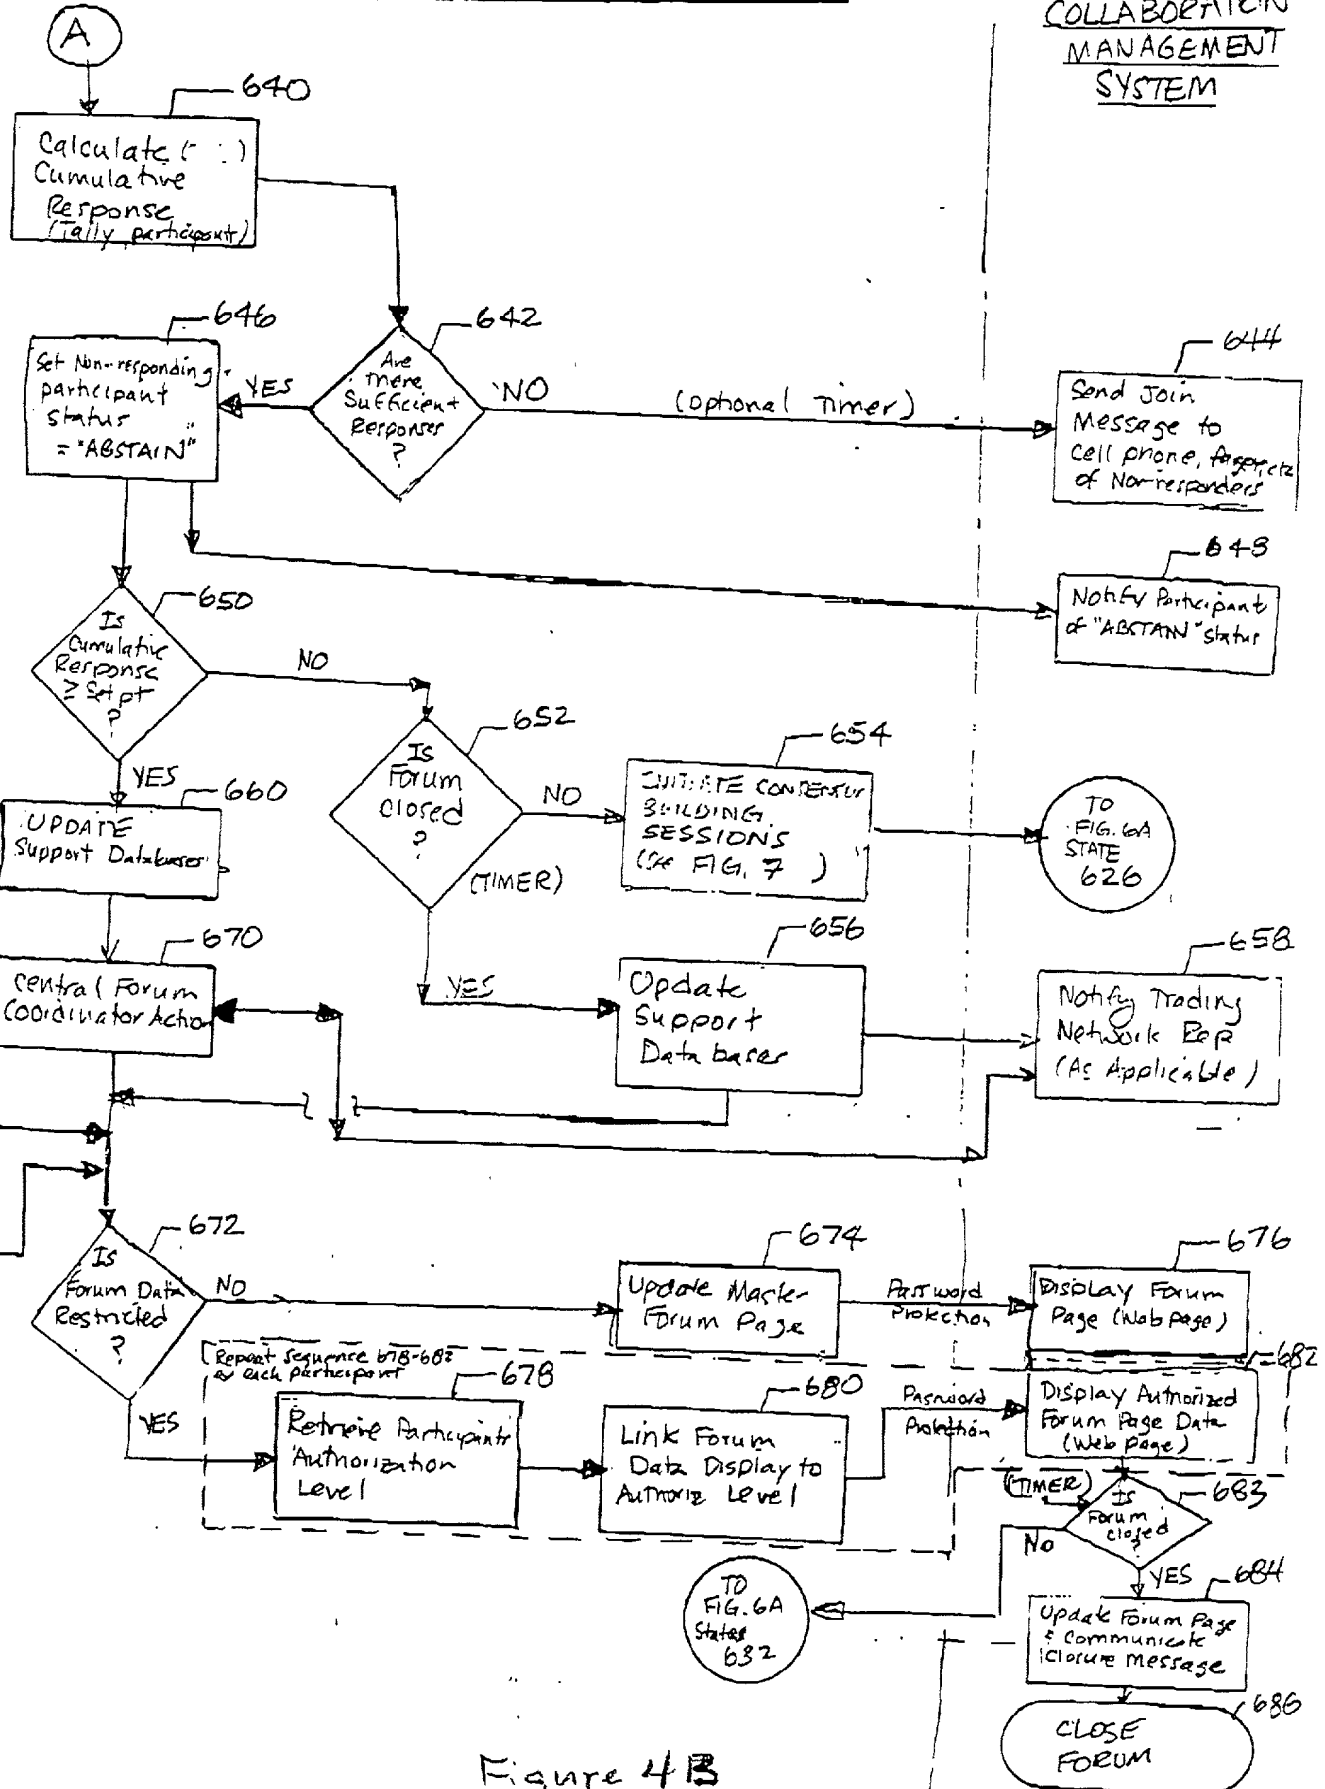 COLLABORATION
MANAGEMENT
SYSTEM
A
640
Calculate
Cumulative
Response
(Tally participant)
646
642
644
Set Non-responding
participant
status
= "ABSTAIN"
YES
Are
there
Sufficient
Responses
?
NO
(Optional Timer)
Send Join
Message to
cell phone, pager, etc
of Non-responders
648
Notify Participant
of "ABSTAIN" status
650
Is
Cumulative
Response
≥ Set pt
?
NO
YES
652
Is
Forum
closed
?
NO
(TIMER)
YES
654
INITIATE CONSENSUS
BUILDING
SESSIONS
(See FIG. 7 )
TO
FIG. 6A
STATE
626
660
UPDATE
Support Databases
670
Central Forum
Coordinator Action
656
Update
Support
Databases
658
Notify Trading
Network Rep
(As Applicable)
672
Is
Forum Data
Restricted
?
NO
YES
674
Update Master
Forum Page
Password
Protection
676
Display Forum
Page (Web Page)
Repeat sequence 678-682
for each participant
678
Retrieve Participants
Authorization
Level
680
Link Forum
Data Display to
Authoriz Level
Password
Protection
682
Display Authorized
Forum Page Data
(Web page)
(TIMER)
683
Is
Forum
closed
?
No
YES
TO
FIG. 6A
States
632
684
Update Forum Page
& Communicate
Closure Message
686
CLOSE
FORUM
Figure 4B